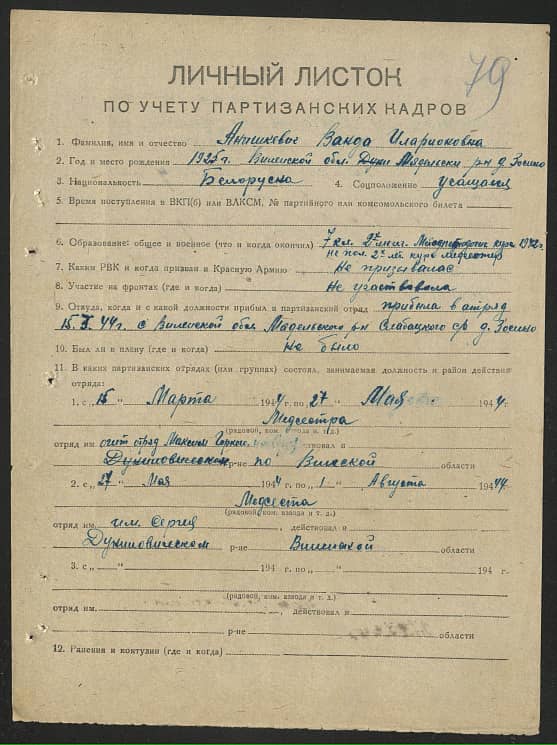 79
ЛИЧНЫЙ ЛИСТОК
ПО УЧЕТУ ПАРТИЗАНСКИХ КАДРОВ
1. Фамилия, имя и отчество Анишкевич Ванда Иларионовна
2. Год и место рождения 1925 г. Виленской обл. Мядельски р-н д. Зосино
3. Национальность Белоруска 4. Соцположение учащаяся
5. Время поступления в ВКП(б) или ВЛКСМ, № партийного или комсомольского билета
6. Образование: общее и военное (что и когда окончил) 7 кл. курс 1942 г.
не пол. 2х лет курс медсестер
7. Каким РВК и когда призван в Красную Армию Не призывалас
8. Участие на фронтах (где и когда) Не участвовала
9. Откуда, когда и с какой должности прибыл в партизанский отряд прибыла в отряд
44 г. с Виленской обл Мядельского р-н с/с д. Зосино
10. Был ли в плену (где и когда) не было
11. В каких партизанских отрядах (или группах) состоял, занимаемая должность и район действия
отряда:
1. с „15“ Марта 1944 г. по „27“ Мая 1944 г.
Медсестра
(рядовой, ком. взвода и т. д.)
отряд им. отряд Максим Горког. действовал в
Дуниловическом р-не по Вилеской области
2. с „27“ Мая 1944 г. по „1“ Августа 1944 г.
Медсеста
(рядовой, ком. взвода и т. д.)
отряд им. им. Сергея, действовал в
Дуниловическом р-не Виленской области
3. с „ “ 194 г. по „ “ 194 г.
(рядовой, ком. взвода и т. д.)
отряд им. действовал в
р-не области
12. Ранения и контузии (где и когда)